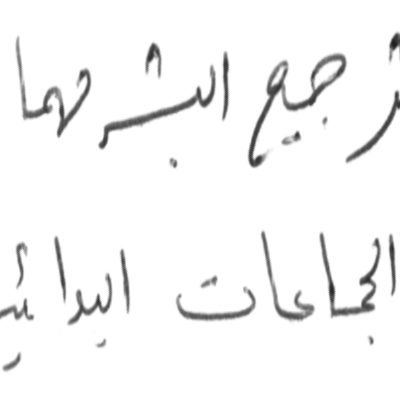 جميع البشر مهما
الجماعات البدائيـ